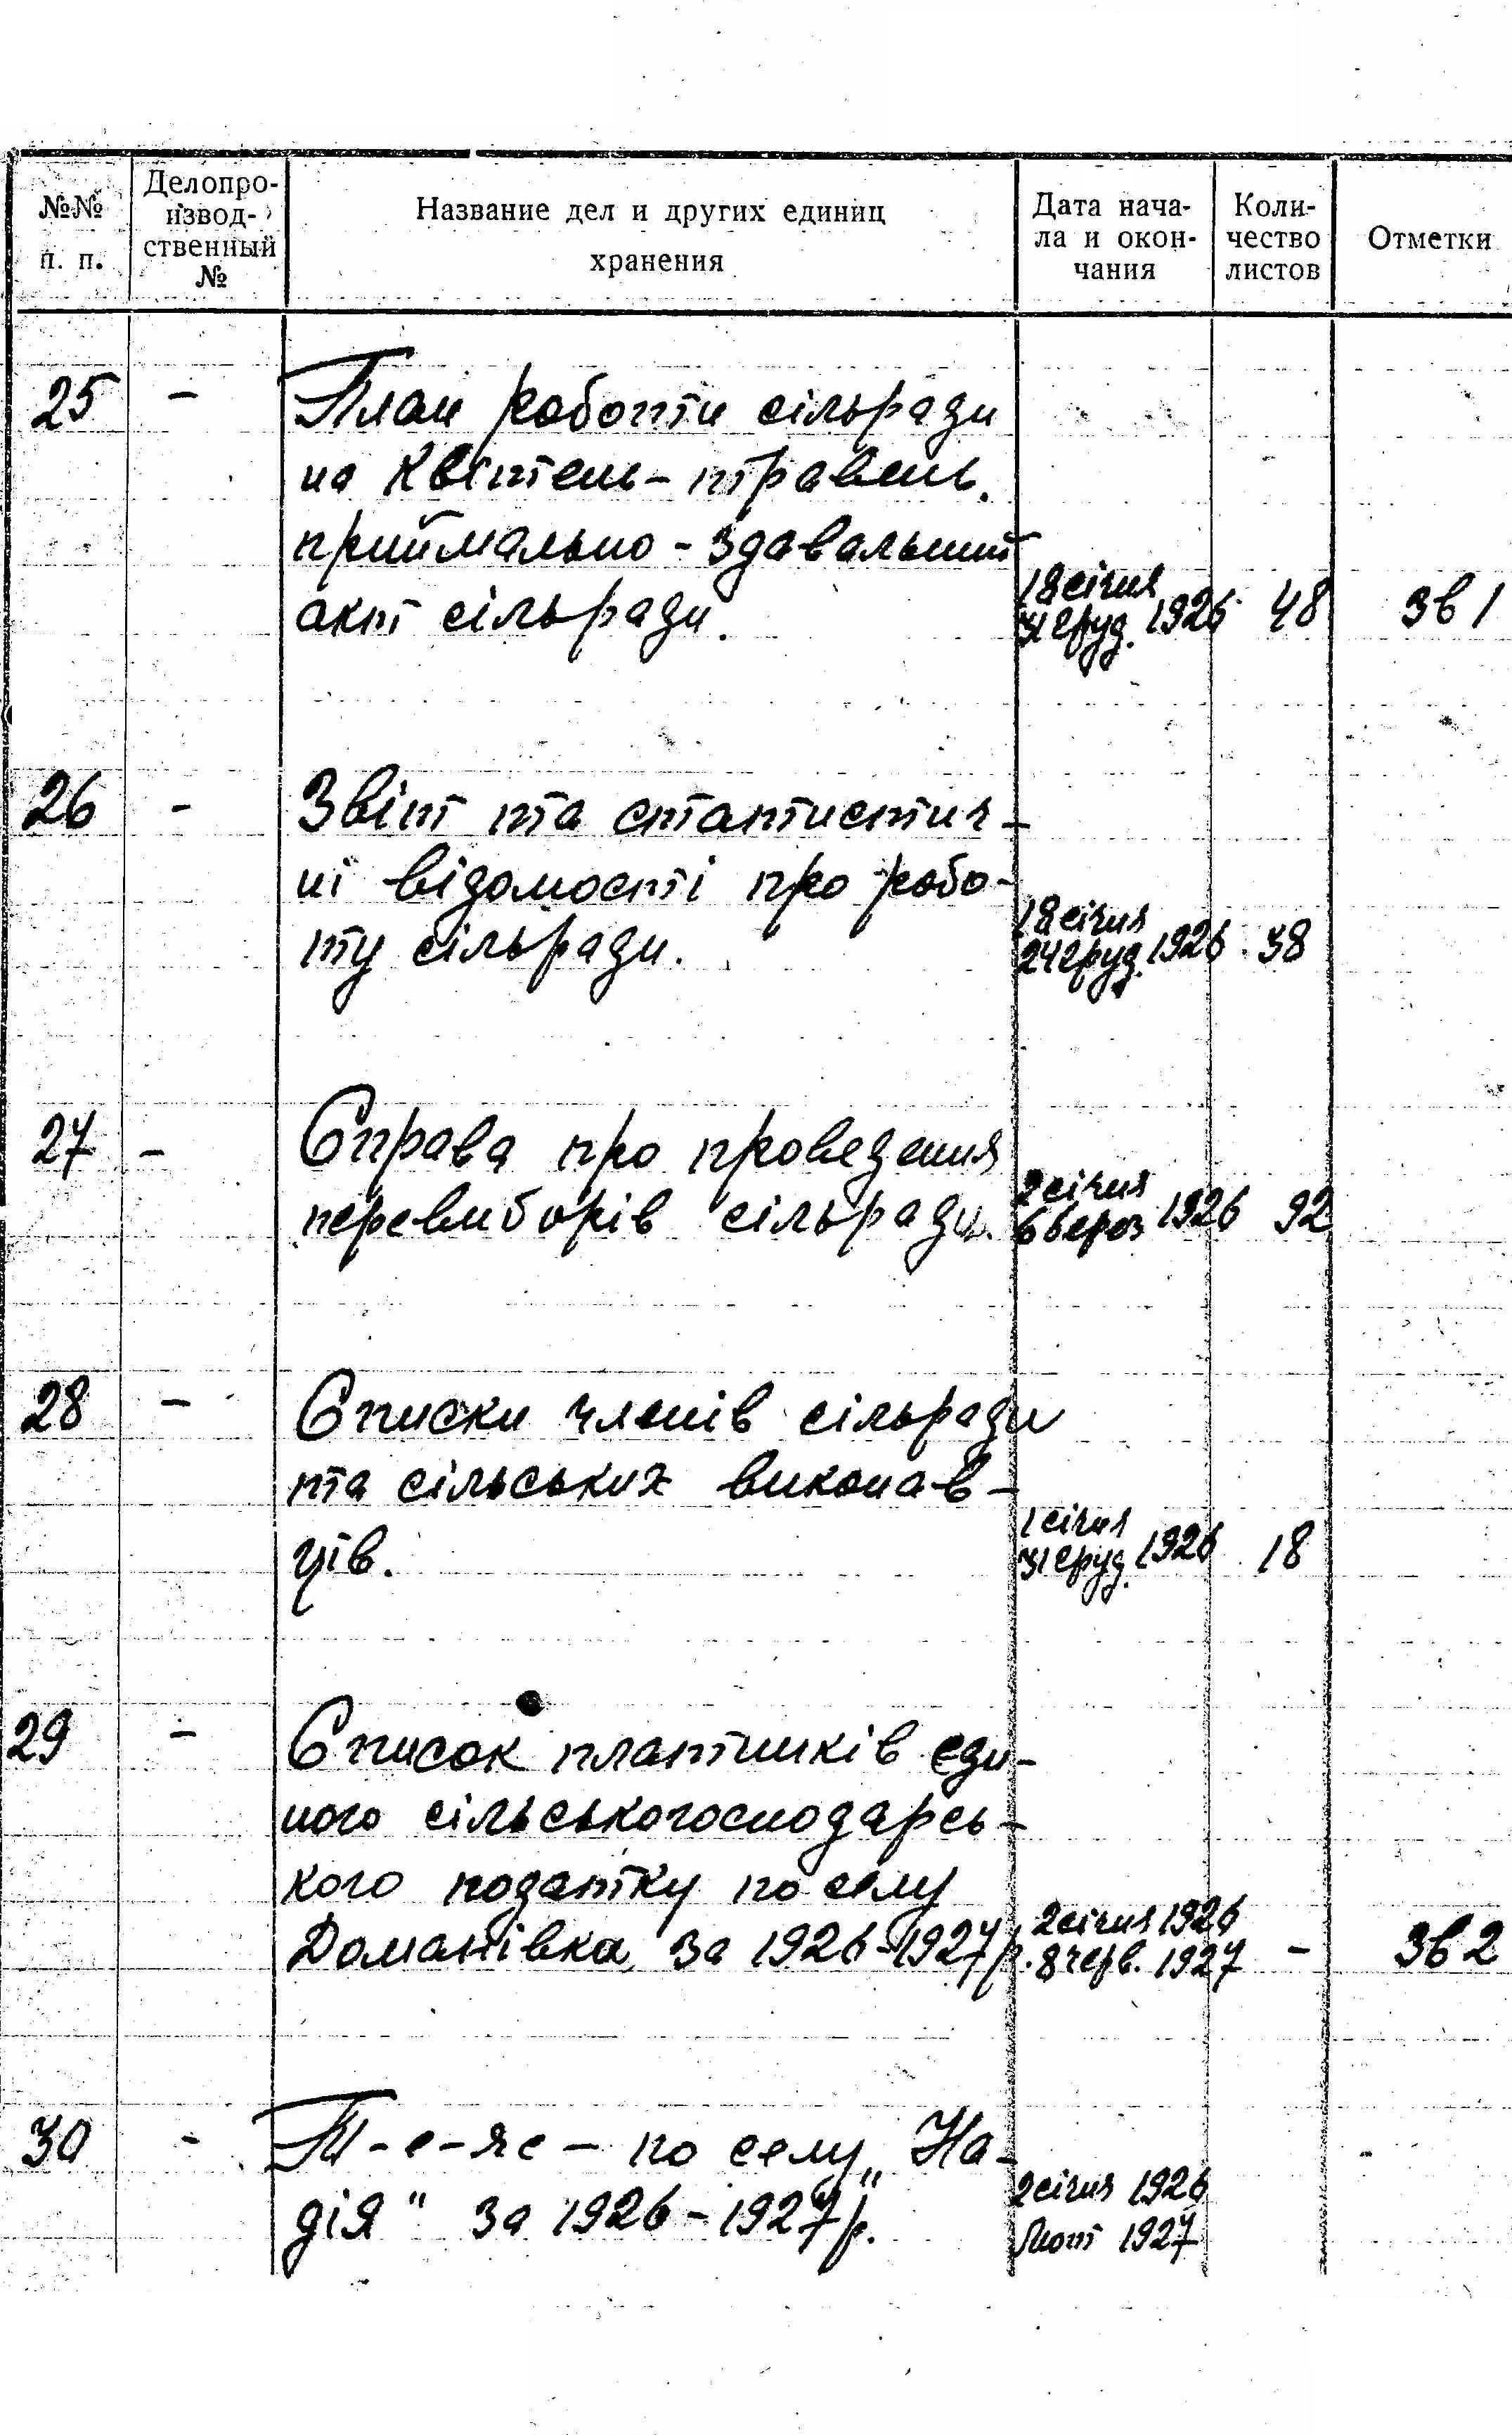 №№ п. п.
Делопро-
извод-
ственный
№
Название дел и других единиц
хранения
Дата нача-
ла и окон-
чания
Коли-
чество
листов
Отметки
25 - План роботи сільради
на квітень-травень,
приймально-здавальний
акт сільради.
18 січня
31 груд. 1926 48 Зв 1
26 - Звіт та статистич-
ні відомості про робо-
ту сільради.
18 січня
24 груд. 1926 38
27 - Справа про проведення
перевиборів сільради.
2 січня
6 берез 1926 92
28 - Списки членів сільради
та сільських виконав-
ців.
1 січня
31 груд. 1926 18
29 - Список платників єди-
ного сільськогосподарсь-
кого податку по селу
Доманівка за 1926-1927 р.
2 січня 1926
8 черв. 1927 - Зв 2
30 - Т-е-яс - по селу „На-
дія" за 1926-1927 р.
2 січня 1926
Лют 1927